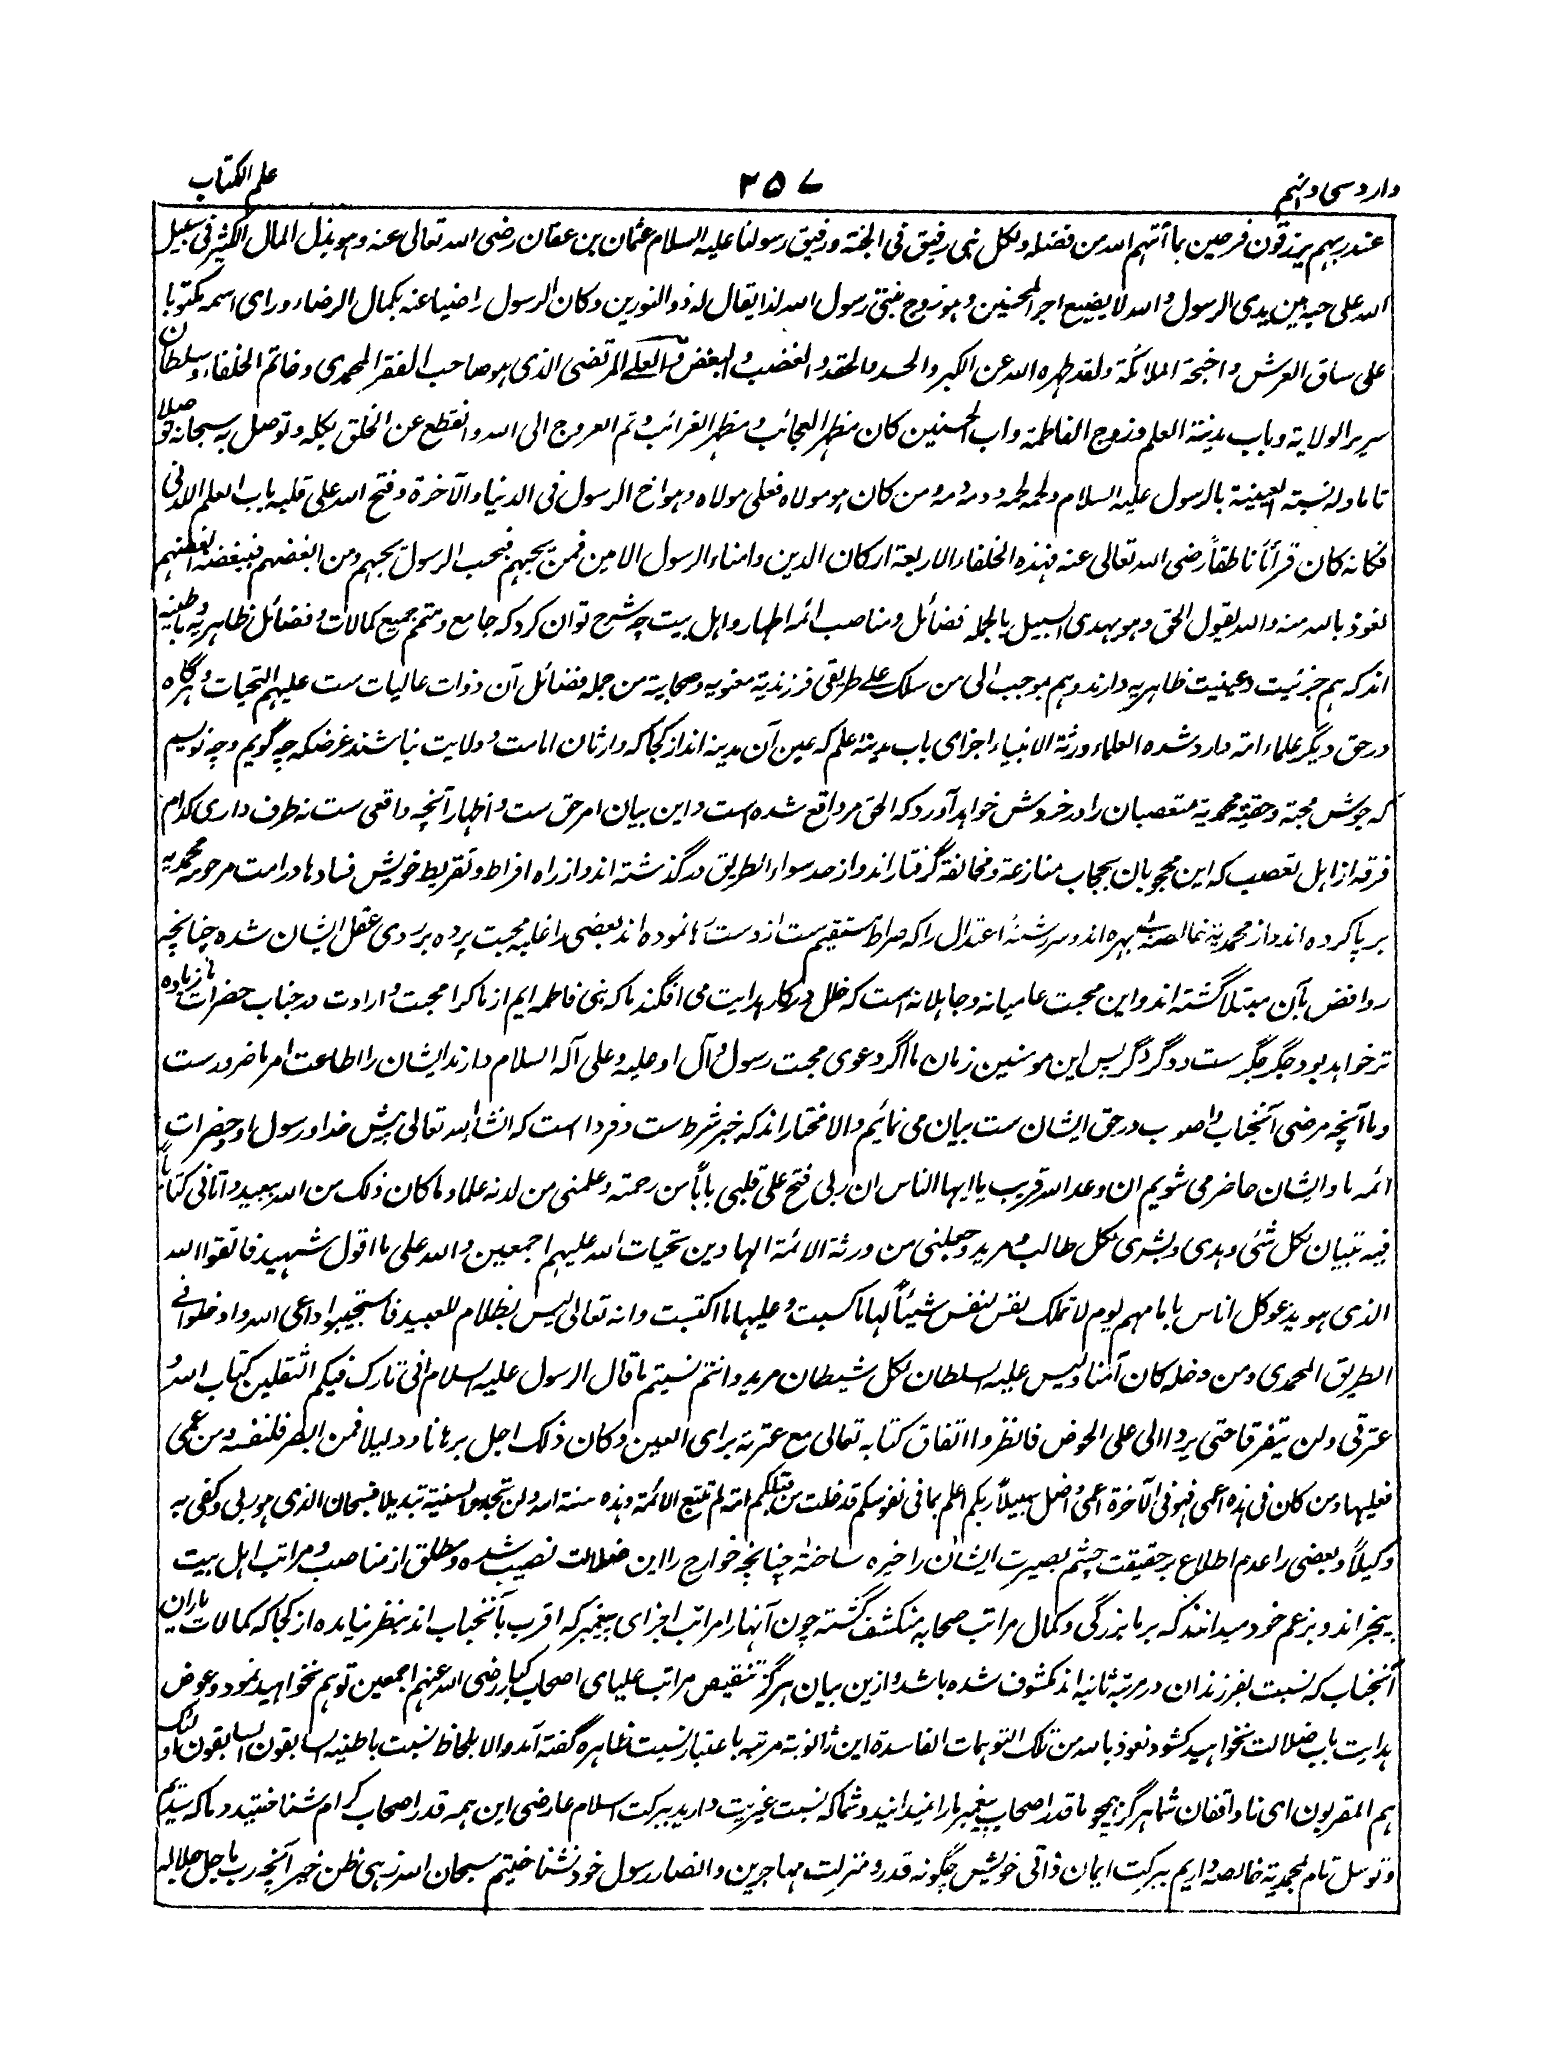 وارد سی و نهم ۲۵۷ علم الکتاب
عند ربهم یرزقون فرحین بما آتهم الله من فضله ولکل نبی رفیق فی الجنة ورفیق رسولنا علیه السلام عثمان بن عفان رضی الله تعالی عنه وهو بذل المال الکثیر فی سبیل
الله علی حبه بین یدی الرسول والله لا یضیع اجر المحسنین وهو زوج بنتی رسول الله لذا یقال له ذو النورین وکان الرسول راضیا عنه بکمال الرضاء ورای اسمه مکتوبا
علی ساق العرش واجنحة الملائکة ولقد طهره الله عن الکبر والحسد والحقد والغضب والبغض والعلی المرتضی الذی هو صاحب الفقر المحمدی وخاتم الخلفاء وسلطان
سریر الولایة وباب مدینة العلم وزوج الفاطمة واب الحسنین کان مظهر العجائب ومظهر الغرائب وتم العروج الی الله وانقطع عن الخلق بکله وتوصل به سبحانه توصلا
تاما وله نسبة العینیة بالرسول علیه السلام ولحمه لحمه ودمه دمه ومن کان هو مولاه فعلی مولاه وهو اخ الرسول فی الدنیا والآخرة وفتح الله علی قلبه باب العلم اللدنی
فکانه کان قرآنا ناطقاً رضی الله تعالی عنه فهذه الخلفاء الاربعة ارکان الدین وامناء الرسول الامین فمن یحبهم فبحب الرسول یحبهم ومن ابغضهم فببغضه ابغضهم
نعوذ بالله منه والله یقول الحق وهو یهدی السبیل بالجمله فضائل ومناصب ائمه اطهار واهل بیت چه شرح توان کرد که جامع ومتمم جمیع کمالات وفضائل ظاهریه وباطنیه
اند که هم جزئیت وعینیت ظاهریه دارند وهم بموجب آلی من سلک علی طریقی فرزندیة معنویه وصحابیة من جمله فضائل آن ذوات عالیات ست علیهم التحیات وهرگاه
در حق دیگر علماء امة وارد شده العلماء ورثة الانبیاء اجزای باب مدینهٔ علم که عین آن مدینه اند از کجا که وارثان امامت وولایت نباشند غرضکه چه گویم وچه نویسم
که جوش محبة وحقیة محمدیة متعصبان را در خروش خواهد آورد که الحق مر واقع شده است واین بیان امر حق ست واظهار آنچه واقعی ست نه طرف داری کدام
فرقه از اهل تعصب که این محجوبان بحجاب منازعة ومخالفة گرفتار اند واز حد سواء الطریق درگذشته اند واز راه افراط وتفریط خویش فسادها در امت مرحومه محمدیه
برپا کرده اند واز محمدیة خالصه بی بهره اند وسررشتهٔ اعتدال را که صراط مستقیم ست از دست رها نموده اند بعضی را غلبه محبت پرده بر روی عقل ایشان شده چنانچه
روافض بآن مبتلا گشته اند واین محبت عامیانه وجاهلانه است که خلل در کار هدایت می افگند ما که بنی فاطمه ایم از ما کرا محبت وارادت در جناب حضرات ما زیاده
تر خواهد بود جگر جگر ست ودگر دگر پس این مومنین زمان ما اگر دعوی محبت رسول وآل او علیه وعلی آله السلام دارند ایشان را اطاعت امر ما ضرور ست
وما آنچه مرضی آنجناب واصوب در حق ایشان ست بیان می نمائیم والا مختار اند که خبر شرط ست وفردا است که انشاء الله تعالی پیش خدا ورسول او وحضرات
ائمه ما وایشان حاضر می شویم ان وعد الله قریب یا ایها الناس ان ربی فتح علی قلبی باباً من رحمته وعلمنی من لدنه علما وما کان ذلک من الله ببعید وآتانی کتاباً
فیه تبیان لکل شئی وهدی وبشری لکل طالب ومرید وجعلنی من ورثة الائمة الهادین تحیات الله علیهم اجمعین والله علی ما اقول شهید فاتقوا الله
الذی هو یدعو کل اناس بامامهم یوم لا تملک نفس لنفس شیئاً لها ما کسبت وعلیها ما اکتسبت وانه تعالی لیس بظلام للعبید فاستجیبوا داعی الله وادخلوا فی
الطریق المحمدی ومن دخله کان آمنا ولیس علیه السلطان لکل شیطان مرید وانتم نسیتم ما قال الرسول علیه السلام انی تارک فیکم الثقلین کتاب الله و
عترتی ولن یتفرقا حتی یردا الی علی الحوض فانظروا اتفاق کتابه تعالی مع عترته برای العین وکان ذلک اجل برهانا ودلیلا فمن ابصر فلنفسه ومن عمی
فعلیها ومن کان فی هذه اعمی فهو فی الآخرة اعمی واضل سبیلاً ربکم اعلم بما فی نفوسکم قد خلت من قبلکم امة لم تتبع الائمة وهذه سنة الله ولن تجد لسنته تبدیلا فسبحان الذی هو ربی وکفی به
وکیلاً وبعضی را عدم اطلاع بر حقیقت چشم بصیرت ایشان را خیره ساخته چنانچه خوارج را این ضلالت نصیب شده ومطلق از مناصب ومراتب اهل بیت
بیخبر اند وبزعم خود میدانند که بر ما بزرگی وکمال مراتب صحابه منکشف گشته چون آنها را مراتب اجزای پیغمبر که اقرب بآنجناب اند بنظر نیامده از کجا که کمالات یاران
آنجناب که نسبت بفرزندان در مرتبه ثانیه اند مکشوف شده باشد وازین بیان هرگز تنقیص مراتب علیای اصحاب کبار رضی الله عنهم اجمعین توهم نخواهید نمود وعوض
هدایت باب ضلالت نخواهید کشود نعوذ بالله من تلک التوهمات الفاسدة این ثانویة مرتبه باعتبار نسبت ظاهره گفته آمد والا بلحاظ نسبت باطنیه السابقون السابقون اولئک
هم المقربون ای ناواقفان شما هرگز همچو ما قدر اصحاب پیغمبر ما را نمیدانید وشما که نسبت غیریت دارید ببرکت اسلام عارضی این همه قدر اصحاب کرام شناختید وما که سیدیم
وتوسل تام بمحمدیة خالصه داریم ببرکت ایمان ذاتی خویش چگونه قدر ومنزلت مهاجرین وانصار رسول خود نشناختیم سبحان الله زهی ظن خیر آنچه رب ما جل جلاله